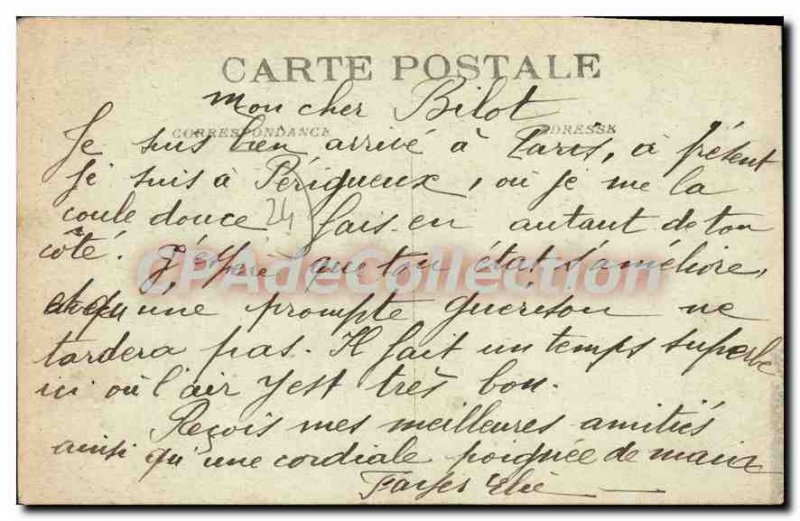 CARTE POSTALE
mon cher Bilot
CORRESPONDANCE ADRESSE
Je suis bien arrivé à Paris, à présent
je suis à Périgueux, où je me la
coule douce 24 fais-en autant de ton
côté. J'espère que ton état s'améliore,
qu'une prompte guérison ne
tardera pas. Il fait un temps superbe
ici où l'air y est très bon.
Reçois mes meilleures amitiés
ainsi qu'une cordiale poignée de main
Elie
CPAdeCollection.com